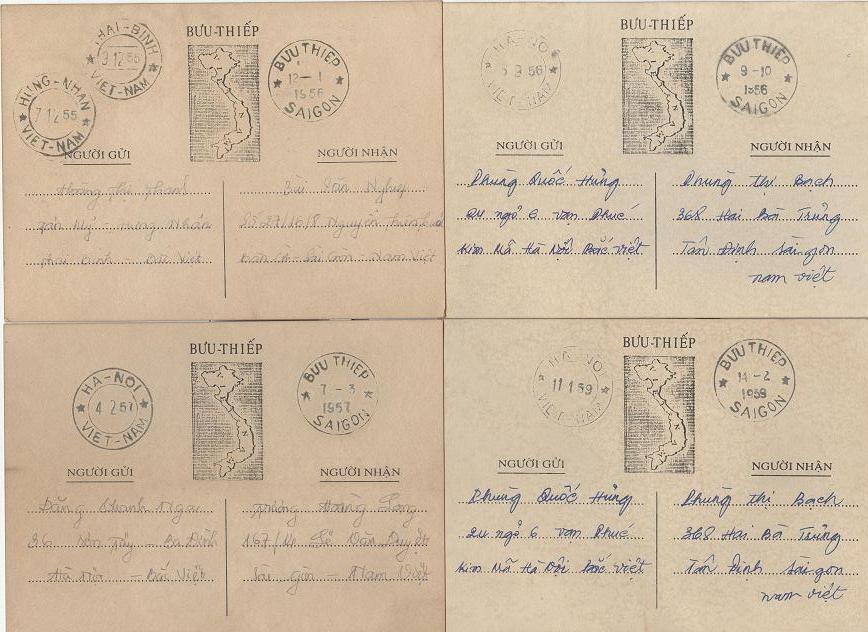 BƯU-THIẾP
THAI-BINH
9 12 55
VIET-NAM
HUNG-NHAN
7 12 55
VIET-NAM
BUU THIEP
12-1
1956
SAIGON
NGƯỜI GỬI
NGƯỜI NHẬN
Hưng Nhân
Bùi Văn
Sài Gòn - Nam Việt
BƯU-THIẾP
HA-NOI
9 56
VIET-NAM
BUU THIEP
9-10
1956
SAIGON
NGƯỜI GỬI
NGƯỜI NHẬN
Phùng Quốc Hùng
24 ngõ 6 vạn Phúc
Kim Mã Hà Nội Bắc việt
Phùng Thị Bạch
368 Hai Bà Trưng
Tân Định Sàigon
nam việt
BƯU-THIẾP
HA-NOI
4 2 57
VIET-NAM
BUU THIEP
7-3
1957
SAIGON
NGƯỜI GỬI
NGƯỜI NHẬN
Đặng Khanh
36 Sơn Tây - Ba Đình
Hà Nội - Bắc Việt
Hoàng Long
167/ Lê Văn Duyệt
Sài gòn - Nam Việt
BƯU-THIẾP
HA-NOI
11 1 59
VIET-NAM
BUU THIEP
14-2
1959
SAIGON
NGƯỜI GỬI
NGƯỜI NHẬN
Phùng Quốc Hùng
24 ngõ 6 vạn Phúc
Kim Mã Hà Nội Bắc việt
Phùng Thị Bạch
368 Hai Bà Trưng
Tân Định Sàigon
nam việt